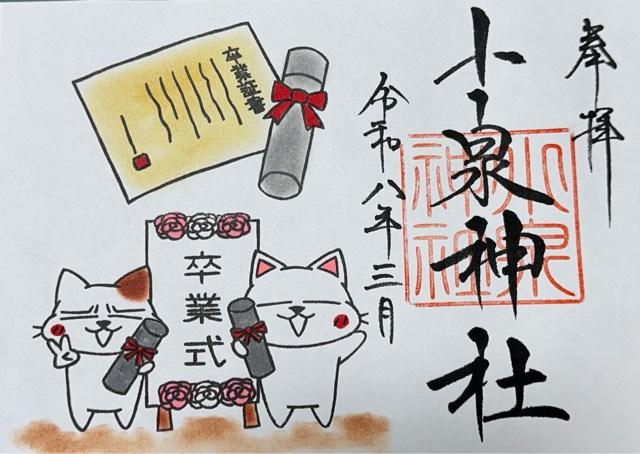 奉拝
小泉神社
小泉
神社
令和八年三月
卒業証書
卒業式